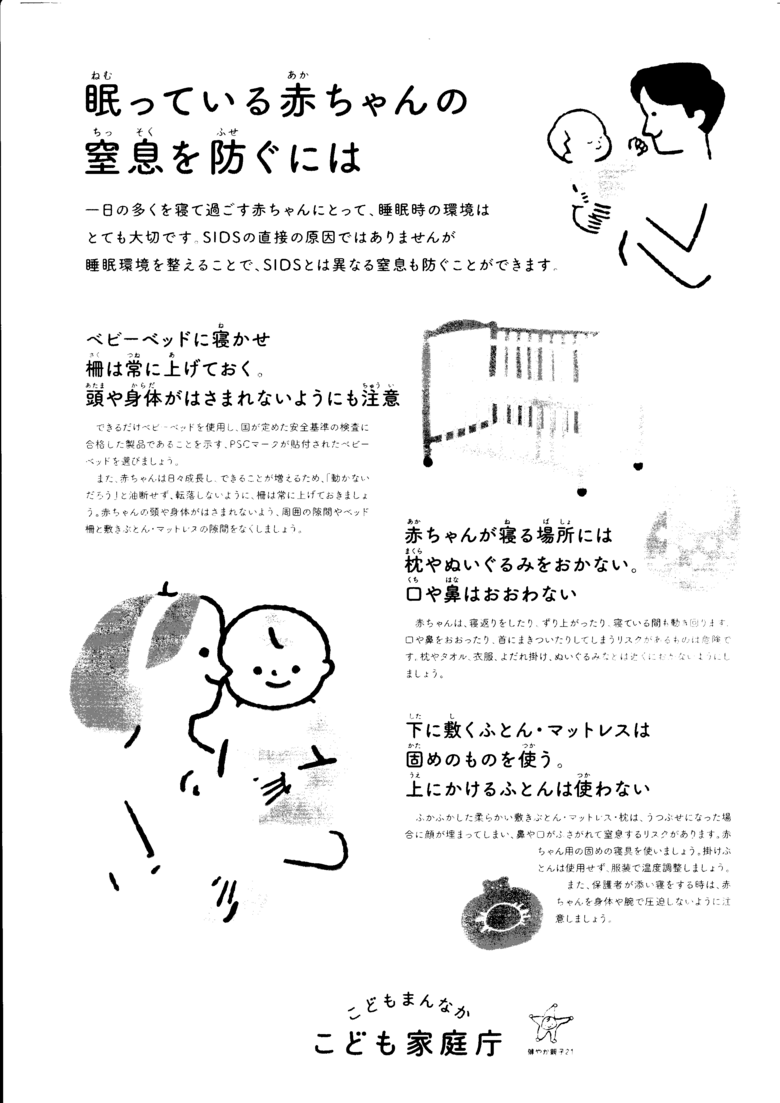 眠っている赤ちゃんの
窒息を防ぐには
一日の多くを寝て過ごす赤ちゃんにとって、睡眠時の環境は
とても大切です。SIDSの直接の原因ではありませんが
睡眠環境を整えることで、SIDSとは異なる窒息も防ぐことができます。
ベビーベッドに寝かせ
柵は常に上げておく。
頭や身体がはさまれないようにも注意
できるだけベビーベッドを使用し、国が定めた安全基準の検査に
合格した製品であることを示す、PSCマークが貼付されたベビー
ベッドを選びましょう。
また、赤ちゃんは日々成長し、できることが増えるため、「動かない
だろう」と油断せず、転落しないように、柵は常に上げておきましょ
う。赤ちゃんの頭や身体がはさまれないよう、周囲の隙間やベッド
柵と敷きぶとん・マットレスの隙間をなくしましょう。
赤ちゃんが寝る場所には
枕やぬいぐるみをおかない。
口や鼻はおおわない
赤ちゃんは、寝返りをしたり、ずり上がったり、寝ている間も動き回ります。
口や鼻をおおったり、首にまきついたりしてしまうリスクがあるものは危険で
す。枕やタオル、衣服、よだれ掛け、ぬいぐるみなどは近くにおかないようにし
ましょう。
下に敷くふとん・マットレスは
固めのものを使う。
上にかけるふとんは使わない
ふかふかした柔らかい敷きぶとん・マットレス・枕は、うつぶせになった場
合に顔が埋まってしまい、鼻や口がふさがれて窒息するリスクがあります。赤
ちゃん用の固めの寝具を使いましょう。掛けぶ
とんは使用せず、服装で温度調整しましょう。
また、保護者が添い寝をする時は、赤
ちゃんを身体や腕で圧迫しないように注
意しましょう。
こどもまんなか
こども家庭庁
健やか親子21